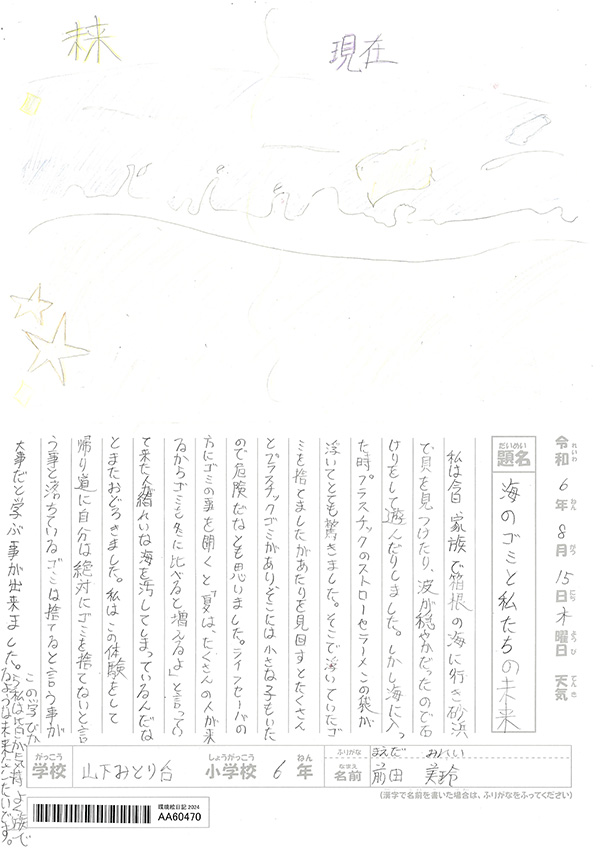 未来
現在
令和6年8月15日木曜日 天気
れいわ ねん がつ にち よう び てん き
だいめい
題名
海のゴミと私たちの未来
私は今日、家族で箱根の海に行き砂浜
で貝を見つけたり、波が穏やかだったので石
けりをして遊んだりしました。しかし海に入っ
た時プラスチックのストローやラーメンの袋が
浮いてとても驚きました。そこで浮いていたゴ
ミを捨てましたがあたりを見回すとたくさん
とプラスチックゴミがありそこには小さな子もいた
ので危険だなとも思いました。ライフセーバーの
方にゴミの事を聞くと「夏は、たくさんの人が来
るからゴミも冬に比べると増えるよ」と言って
て来た人が綺れいな海を汚してしまっているんだな
とまたおどろきました。私はこの体験をして
帰り道に自分は絶対にゴミを捨てないと言
う事と落ちているゴミは捨てると言う事が
大事だと学ぶ事が出来ました。この学びか
ら私は皆が気持よく
るような未来をつくりたいです。
がっこう
学校
山下みどり台
しょうがっこう
小学校
6
ねん
年
ふりがな
まえだ みれい
なまえ
名前
前田 美玲
(漢字で名前を書いた場合は、ふりがなをふってください)
環境絵日記 2024
AA60470